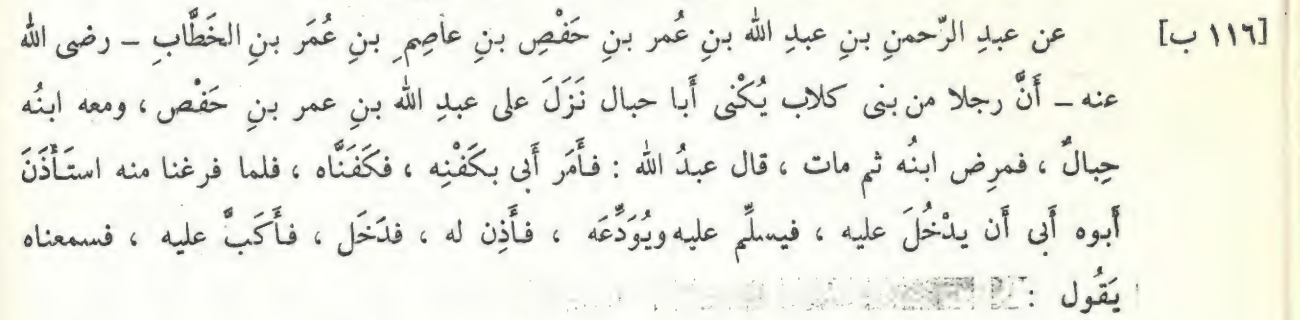 [١١٦ ب] عن عبدِ الرّحمنِ بنِ عبدِ الله بنِ عُمر بنِ حَفْصِ بنِ عاصِمِ بنِ عُمَر بنِ الخَطَّابِ – رضى الله
عنه – أَنَّ رجلا من بنى كلاب يُكْنى أَبا حبال نَزَلَ على عبدِ الله بنِ عمر بنِ حَفْص ، ومعه ابنُه
حِبالٌ ، فمرِض ابنُه ثم مات ، قال عبدُ الله : فأَمَر أَبى بكَفْنِه ، فكَفَنَّاه ، فلما فرغنا منه استَأْذَنَ
أَبوه أَبى أَن يدْخُلَ عليه ، فيسلِّم عليه ويُوَدِّعَه ، فأَذِن له ، فدَخَل ، فأَكَبَّ عليه ، فسمعناه
يَقُول :